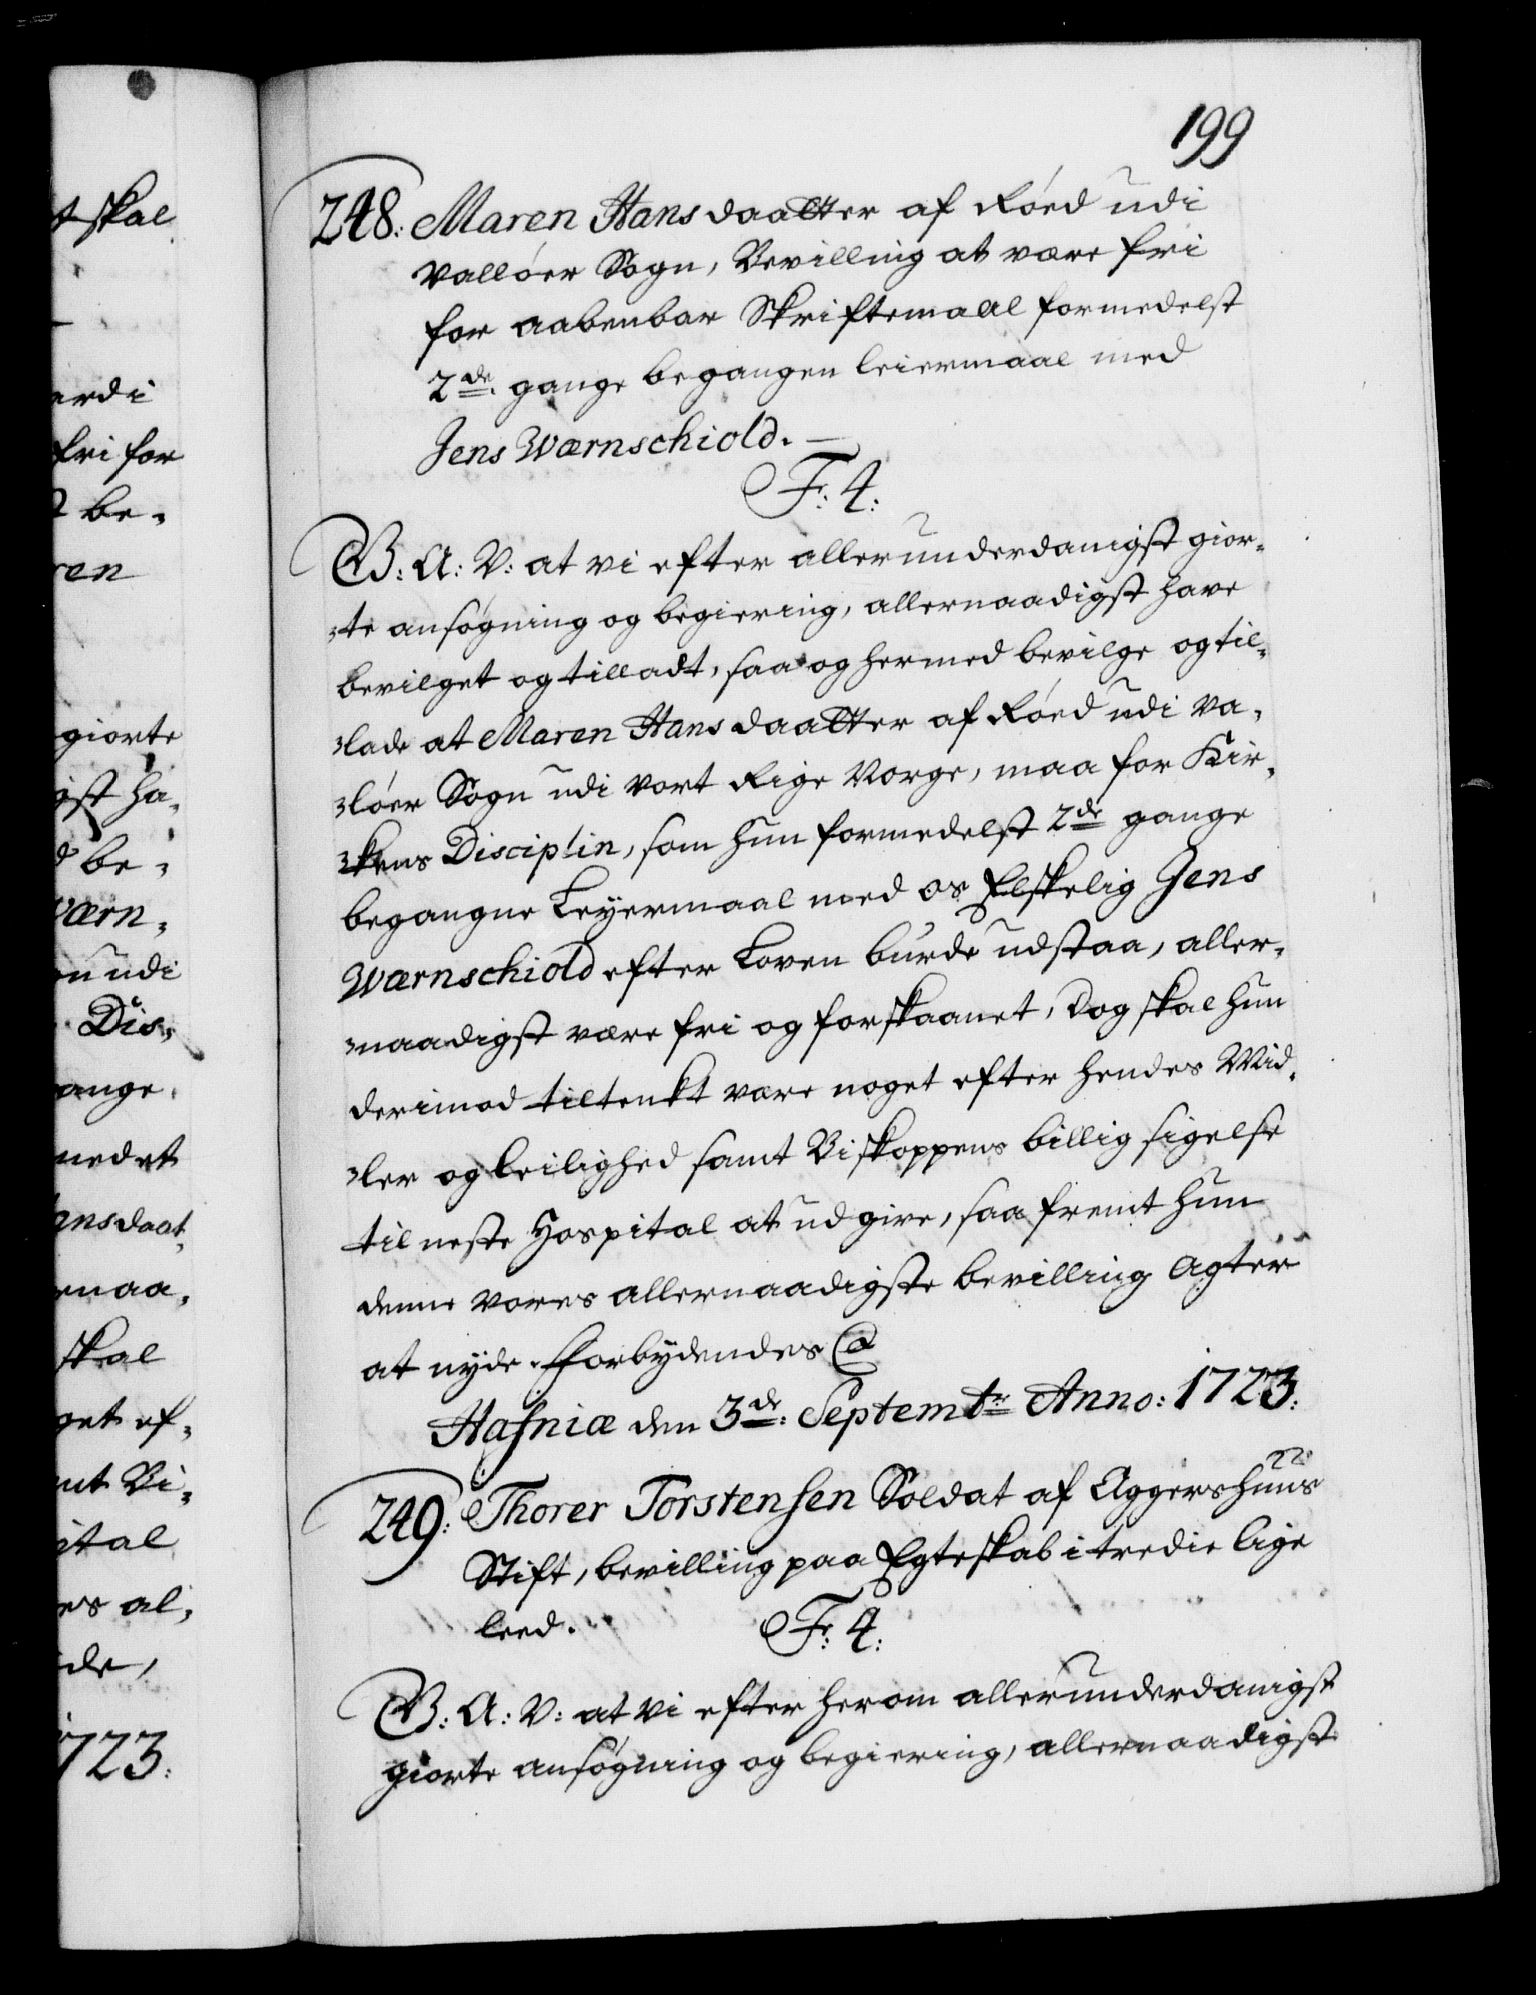 199
248. Maren Hansdaatter af Röed udi
Vallöer Sogn, Bevilling at være fri
for aabenbar Skriftemaal formedelst
2de gange begangen leiermaal med
Jens Wærnschiold. —
F: 4:
G: A: V: at vi efter allerunderdanigst gior-
te ansøgning og begiering, allernaadigst have
bevilget og tilladt, saa og hermed bevilge og til-
lade at Maren Hansdaatter af Röed udi Va-
löer Sogn udi vort Rige Norge, maa for Kir-
kens Disciplin, som hun formedelst 2de gange
begangne Leyermaal med os Elskelig Jens
Wærnschiold efter Loven burde udstaa, aller-
naadigst være fri og forskaanet, Dog skal hun
derimod tiltenkt være noget efter hendes Mid-
ler og leilighed samt Biskoppens billig sigelse
til neste Hospital at udgive, saa fremt hun
denne vores allernaadigste bevilling agter
at nyde. Forbydendes @
Hafniæ den 3de: Septembr Anno: 1723.
249. Thorer Torstensen Soldat af Aggershuus
Stift, bevilling paa Egteskab i tredie lige
leed. F: 4:
G: A: V: at vi efter herom allerunderdanigst
giorte ansøgning og begiering, allernaadigst
t skal
erdi
fri for
t be-
ren
giorte
gst ha-
d be-
værn-
n udi
Dis-
ange
nedet
ansdaat-
maa-
skal
get ef-
mt Bi-
ital
es al-
de,
1723.